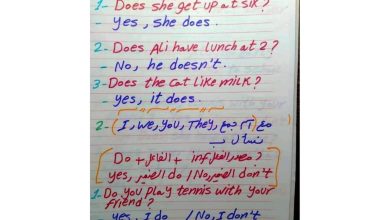 1- Does she get up at six?
- Yes, she does.
2- Does Ali have lunch at 2?
- No, he doesn't.
3- Does the cat like milk?
- yes, it does.
2- I, we, you, They, اسم جمع مع
Do + الفاعل + inf مصدر الفعل ?
yes, الضمير do / No الضمير don't
1- Do you play tennis with your
friend?
- yes, I do / No, I don't